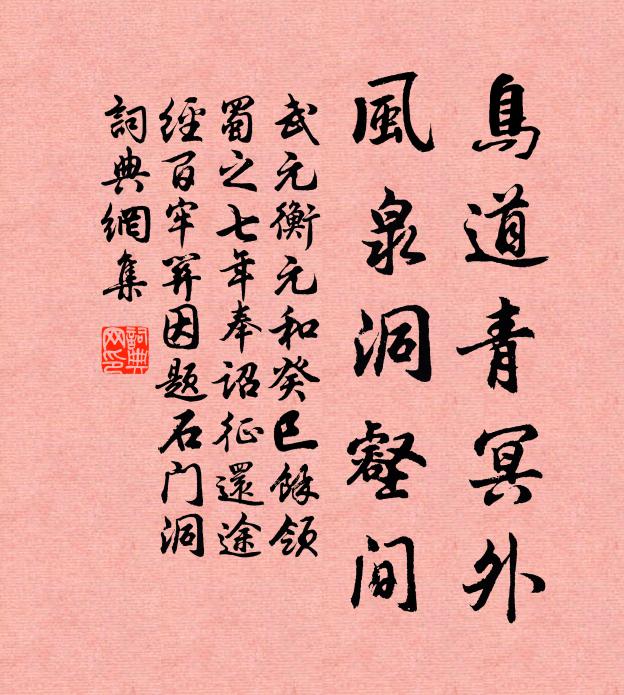 鳥道青冥外
風泉洞壑間
武元衡元和癸巳餘領
蜀之七年奉詔征還途
經百牢關因题石门洞
詞典網集
詞典网印